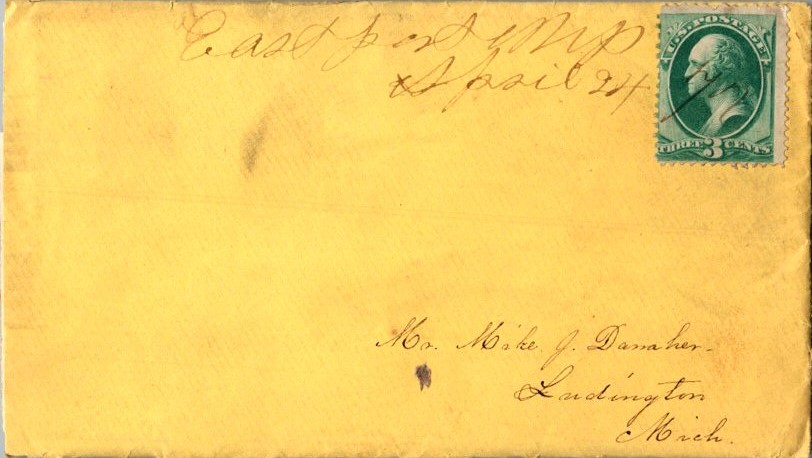 Eastport Mich
April 24
U.S. POSTAGE
THREE 3 CENTS
Mr. Mike J. Danaher.
Ludington
Mich.